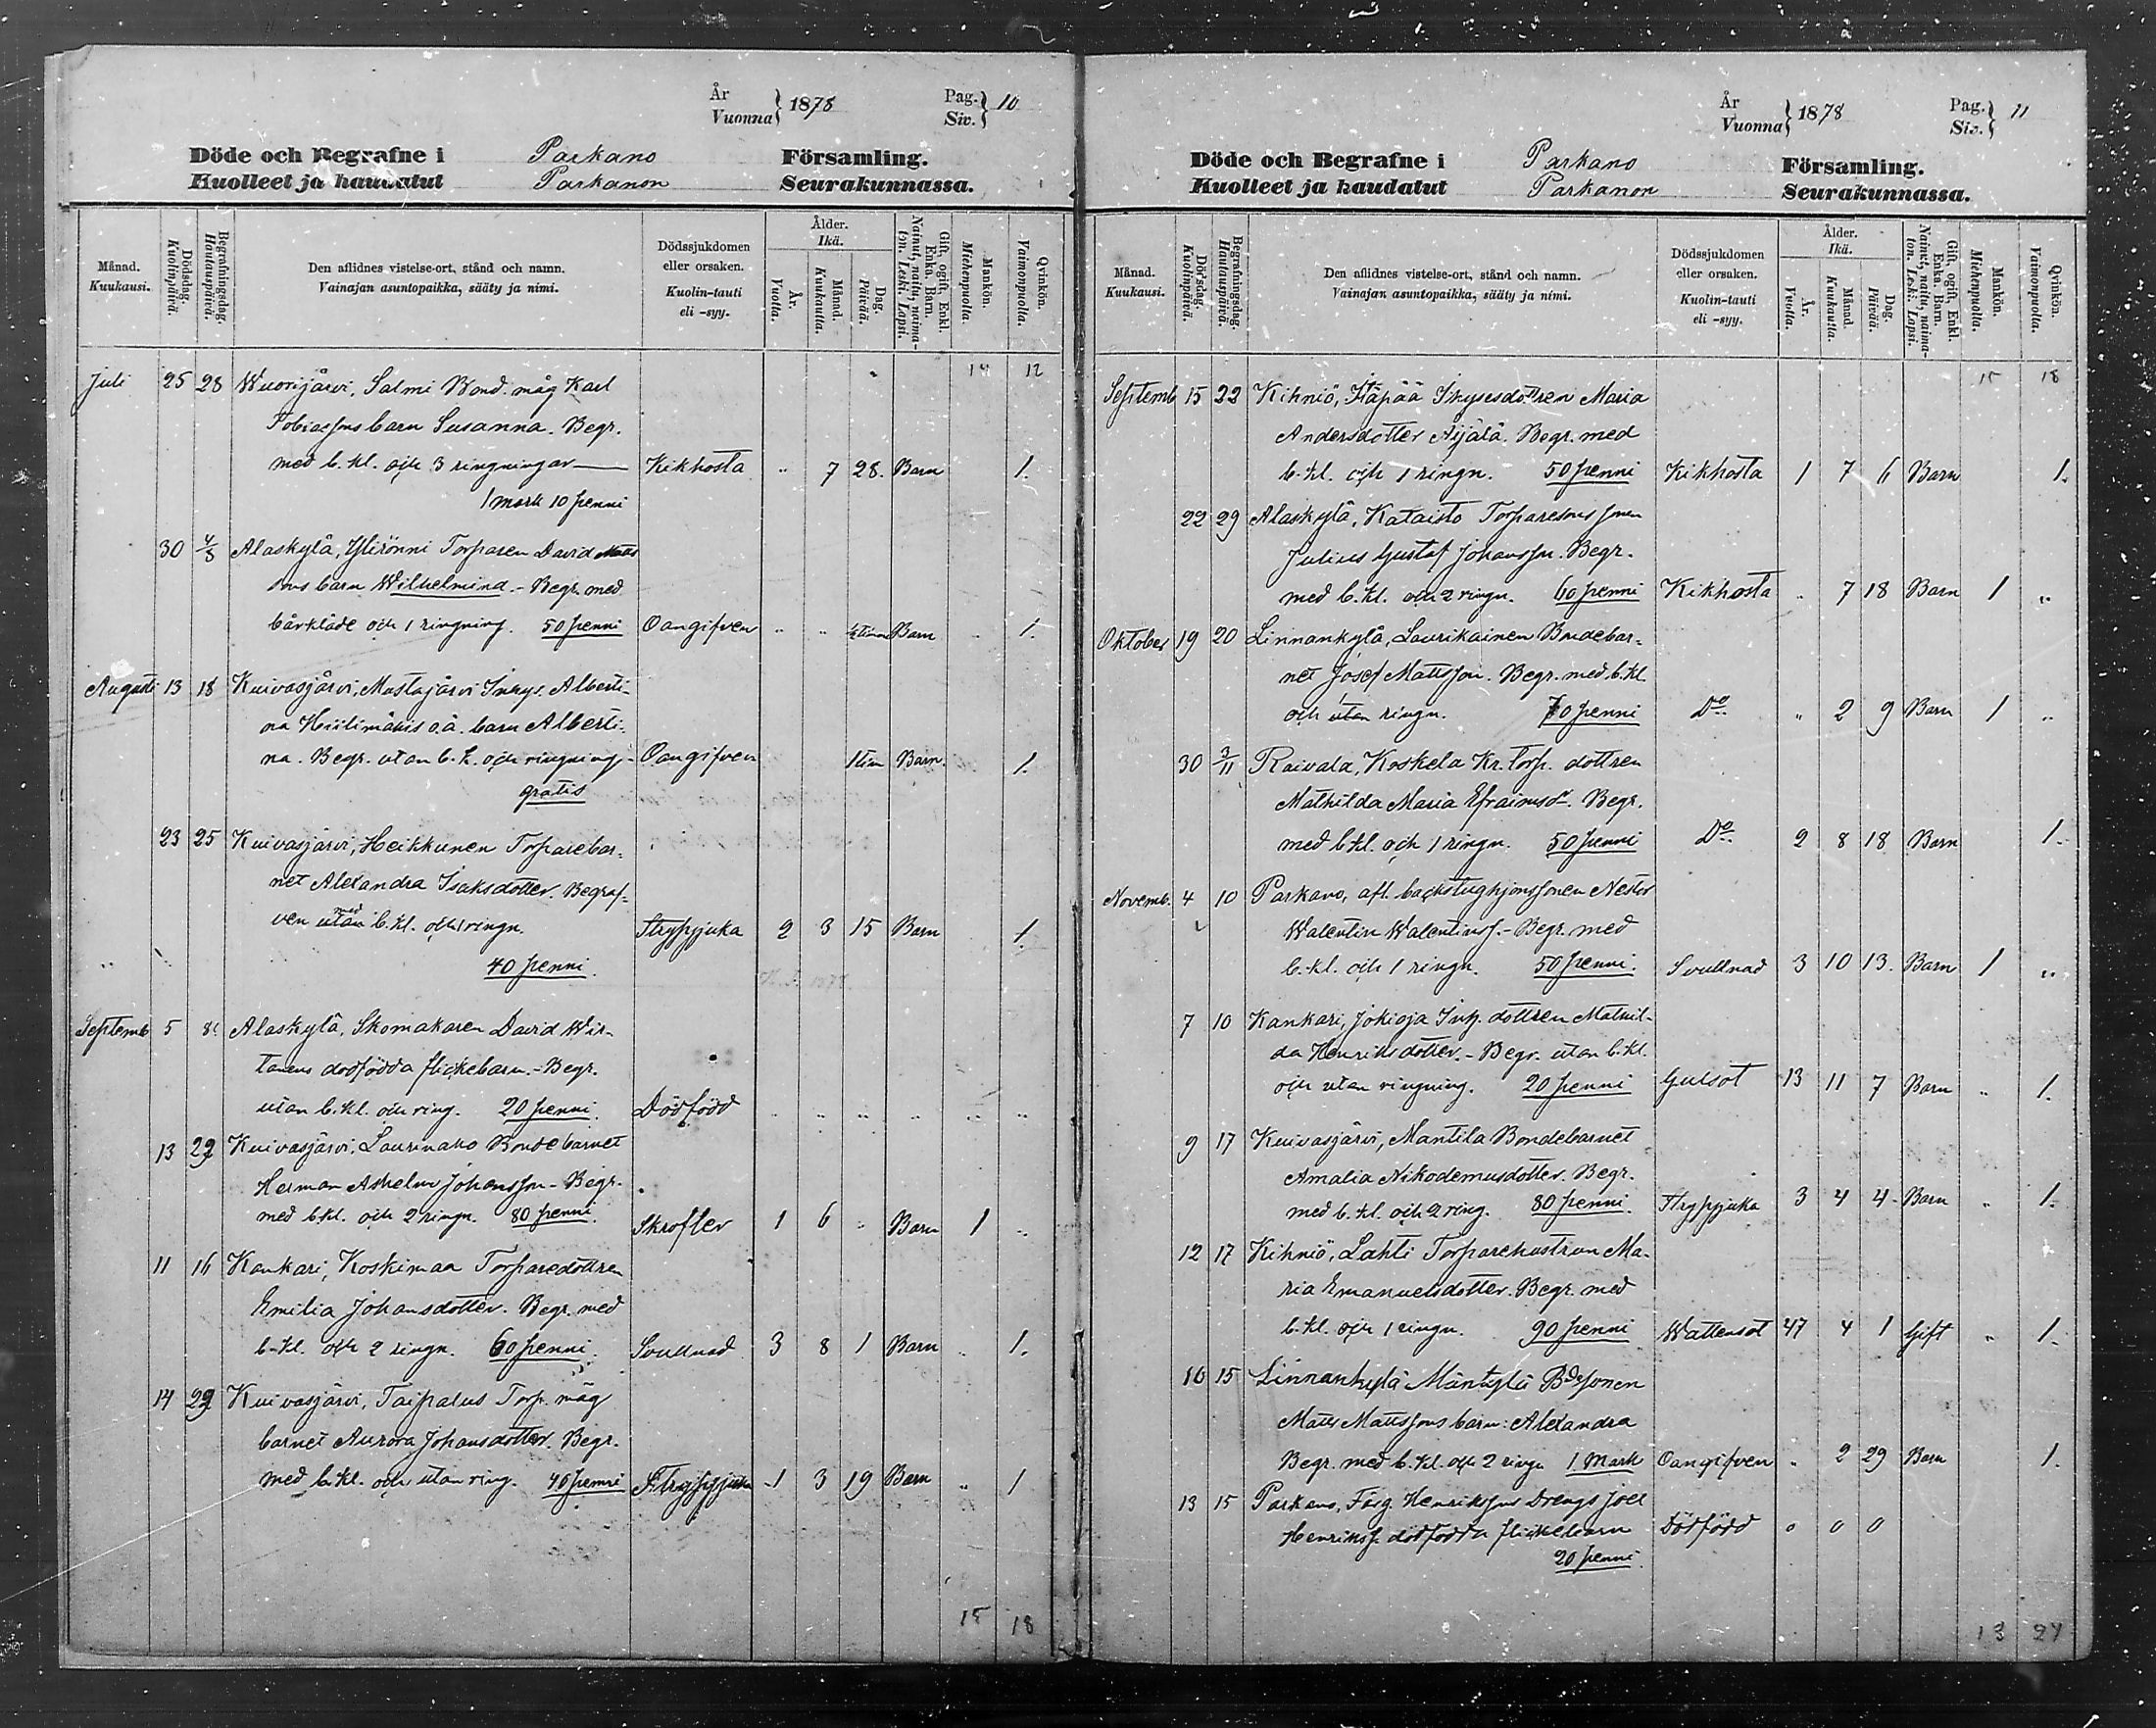 År
Vuonna } 1878
Pag.
Siv. } 10
Döde och Begrafne i Parkano Församling.
Kuolleet ja haudatut Parkanon Seurakunnassa.
Månad. Kuukausi.
Dödsdag. Kuolinpäivä.
Begrafningsdag. Hautauspäivä.
Den aflidnes vistelse-ort, stånd och namn.
Vainajan asuntopaikka, sääty ja nimi.
Dödssjukdomen eller orsaken.
Kuolin-tauti eli -syy.
Ålder. Ikä.
År. Vuotta.
Månad. Kuukautta.
Dag. Päivää.
Gift, ogift, Enkl. Enka. Barn.
Nainut, naitu, naimaton. Leski. Lapsi.
Mankön. Miehenpuolia.
Qvinkön. Vaimonpuolia.
14 12
Juli 25 28 Wuorijärvi, Salmi Bond. måg Karl
Tobiassons barn Susanna. Begr.
med b.kl. och 3 ringningar — Kikhosta " 7 28. Barn 1.
1 mark 10 penni
30 4/8 Alaskylä, Ylirönni Torparen David Matts
sons barn Wilhelmina. - Begr. med
bårkläde och 1 ringning. 50 penni Oangifven " " ½ timma Barn 1.
Augusti 13 18 Kuivasjärvi, Mustajärvi Inhys. Alberti-
na Hiilimäkis o.ä. barn Alberti-
na. Begr. utan b.k. och ringning - Oangifven 1 tim Barn. 1.
gratis
23 25 Kuivasjärvi, Heikkunen Torparebar-
net Alexandra Isaksdotter. Begraf-
ven utan med b.kl. och 1 ringn. Strypsjuka 2 3 15 Barn 1.
40 penni.
Septemb 5 8. Alaskylä, Skomakaren David Wir-
tanens dödfödda flickebarn. - Begr.
utan b.kl. och ring. 20 penni. Dödfödd " " " " " "
13 22 Kuivasjärvi, Laurinaho Bondebarnet
Herman Anshelm Johansson - Begr.
med b.kl. och 2 ringn. 80 penni. Skrofler 1 6 " Barn 1 "
11 16 Kankari, Koskimaa Torparedottren
Emilia Johansdotter. Begr. med
b.kl. och 2 ringn. 60 penni. Svullnad 3 8 1 Barn " 1.
14 22 Kuivasjärvi, Taipalus Torp. måg
barnet Aurora Johansdotter. Begr.
med b.kl. och utan ring. 40 penni Strypsjuka 1 3 19 Barn " 1
15 18
År
Vuonna } 1878
Pag.
Siv. } 11
Döde och Begrafne i Parkano Församling.
Kuolleet ja haudatut Parkanon Seurakunnassa.
Månad. Kuukausi.
Dödsdag. Kuolinpäivä.
Begrafningsdag. Hautauspäivä.
Den aflidnes vistelse-ort, stånd och namn.
Vainajan asuntopaikka, sääty ja nimi.
Dödssjukdomen eller orsaken.
Kuolin-tauti eli -syy.
Ålder. Ikä.
År. Vuotta.
Månad. Kuukautta.
Dag. Päivää.
Gift, ogift, Enkl. Enka. Barn.
Nainut, naitu, naimaton. Leski. Lapsi.
Mankön. Miehenpuolia.
Qvinkön. Vaimonpuolia.
15 18
Septemb 15 22 Kihniö, Häpää Inhysesdottren Maria
Andersdotter Äijälä. Begr. med
b.kl. och 1 ringn. 50 penni Kikhosta 1 7 6 Barn 1.
22 29 Alaskylä, Kataisto Torparesons sonen
Julius Gustaf Johansson. Begr.
med b.kl. och 2 ringn. 60 penni Kikhosta " 7 18 Barn 1 "
Oktober 19 20 Linnankylä, Laurikainen Bondebar-
net Josef Mattsson. Begr. med b.kl.
och utan 1 ringn. 70 penni Do " 2 9 Barn 1 "
30 3/11 Raivala, Koskela Kr. torp. dottren
Mathilda Maria Efraimsdr. Begr.
med b.kl. och 1 ringn. 50 penni Do 2 8 18 Barn 1.
Novemb. 4 10 Parkano, afl. backstughjonssonen Nestor
Walentin Walentinss. - Begr. med
b.kl. och 1 ringn. 50 penni. Svullnad 3 10 13. Barn 1 "
7 10 Kankari, Jokioja Inh. dottren Mathil-
da Henriksdotter. - Begr. utan b.kl.
och utan ringning. 20 penni Gulsot 13 11 7 Barn " 1.
9 17 Kuivasjärvi, Mantila Bondebarnet
Amalia Nikodemusdotter. Begr.
med b.kl. och 2 ring. 80 penni. Strypsjuka 3 4 4 Barn " 1.
12 17 Kihniö, Lahti Torparehustrun Ma-
ria Emanuelsdotter. Begr. med
b.kl. och 1 ringn. 90 penni Wattensot 47 4 1 Gift " 1.
10 15 Linnankylä Mäntylä Bdesonen
Matts Mattssons barn: Alexandra
Begr. med b.kl. och 2 ringn 1 Mark Oangifven " 2 29 Barn 1.
13 15 Parkano, Färg. Henrikssons Drengs Joel
Henrikss. dödfödda flickebarn Dödfödd 0 0 0
20 penni.
13 24